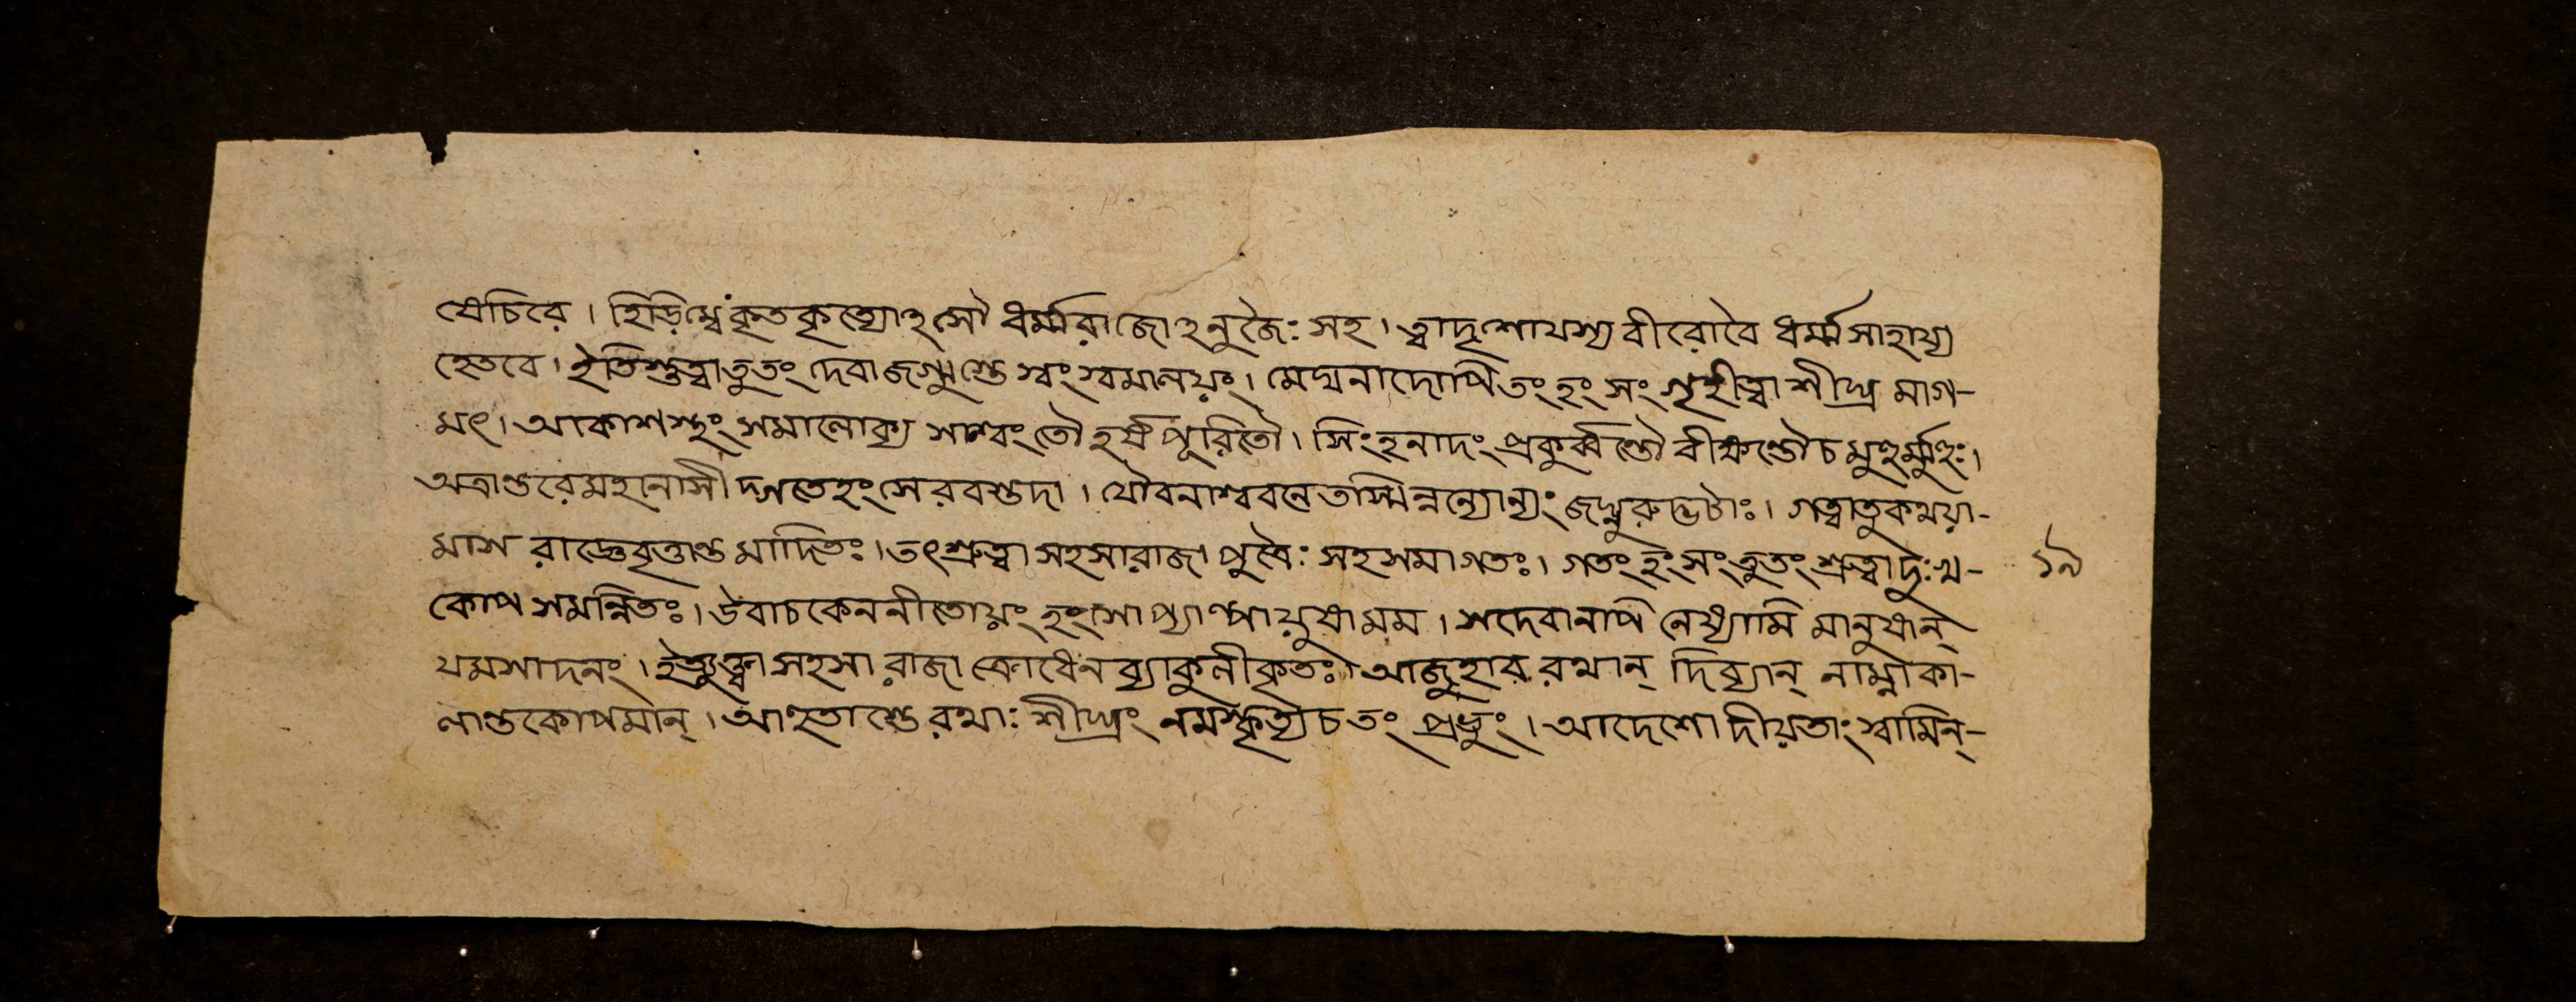 যেচিরে। হিড়িম্বে কৃতকৃত্যোঽসৌ ধর্ম্মরাজোঽনুজৈঃ সহ। ত্বাদৃশোযস্য বীরোবৈ ধর্ম্মসাহায্য
হেতবে। ইতিশ্রুত্বাতুতং দেবাজগ্মুস্তে স্বং স্বমালয়ং। মেঘনাদোপিতং হং সং গৃহীত্বা শীঘ্র মাগ-
মৎ। আকাশস্থং সমালোক্য সাশ্বং তৌ হর্ষপূরিতৌ। সিংহনাদং প্রকুর্ব্বন্তৌ বীক্ষন্তৌচ মুহুর্ম্মুহুঃ।
অত্রান্তরেমহানাসী দ্গতেহংসেরবস্তদা। যৌবনাশ্ববলেতস্মিন্নন্যোন্যং জঘ্নুরুদ্ভটাঃ। গত্বাতুকথয়া-
মাস রাজ্ঞেবৃত্তান্ত মাদিতঃ। তৎশ্রুত্বা সহসারাজা পুত্রৈঃ সহসমাগতঃ। গতং হংসং তুতং শ্রুত্বাদুঃখ- ১৯
কোপ সমন্বিতঃ। উবাচকেননীতোয়ং হংসোপ্যাল্পায়ুষামম। সদেবানপি নেষ্যামি মানুষান্
যমসাদনং। ইত্যুক্ত্বা সহসা রাজা ক্রোধেন ব্যাকুলীকৃতঃ। আজুহাব রথান্ দিব্যান্ নাম্নাকা-
লান্তকোপমান্। আহুতাস্তে রথাঃ শীঘ্রং নমস্কৃত্যচতং প্রভুং। আদেশো দীয়তাং স্বামিন্-